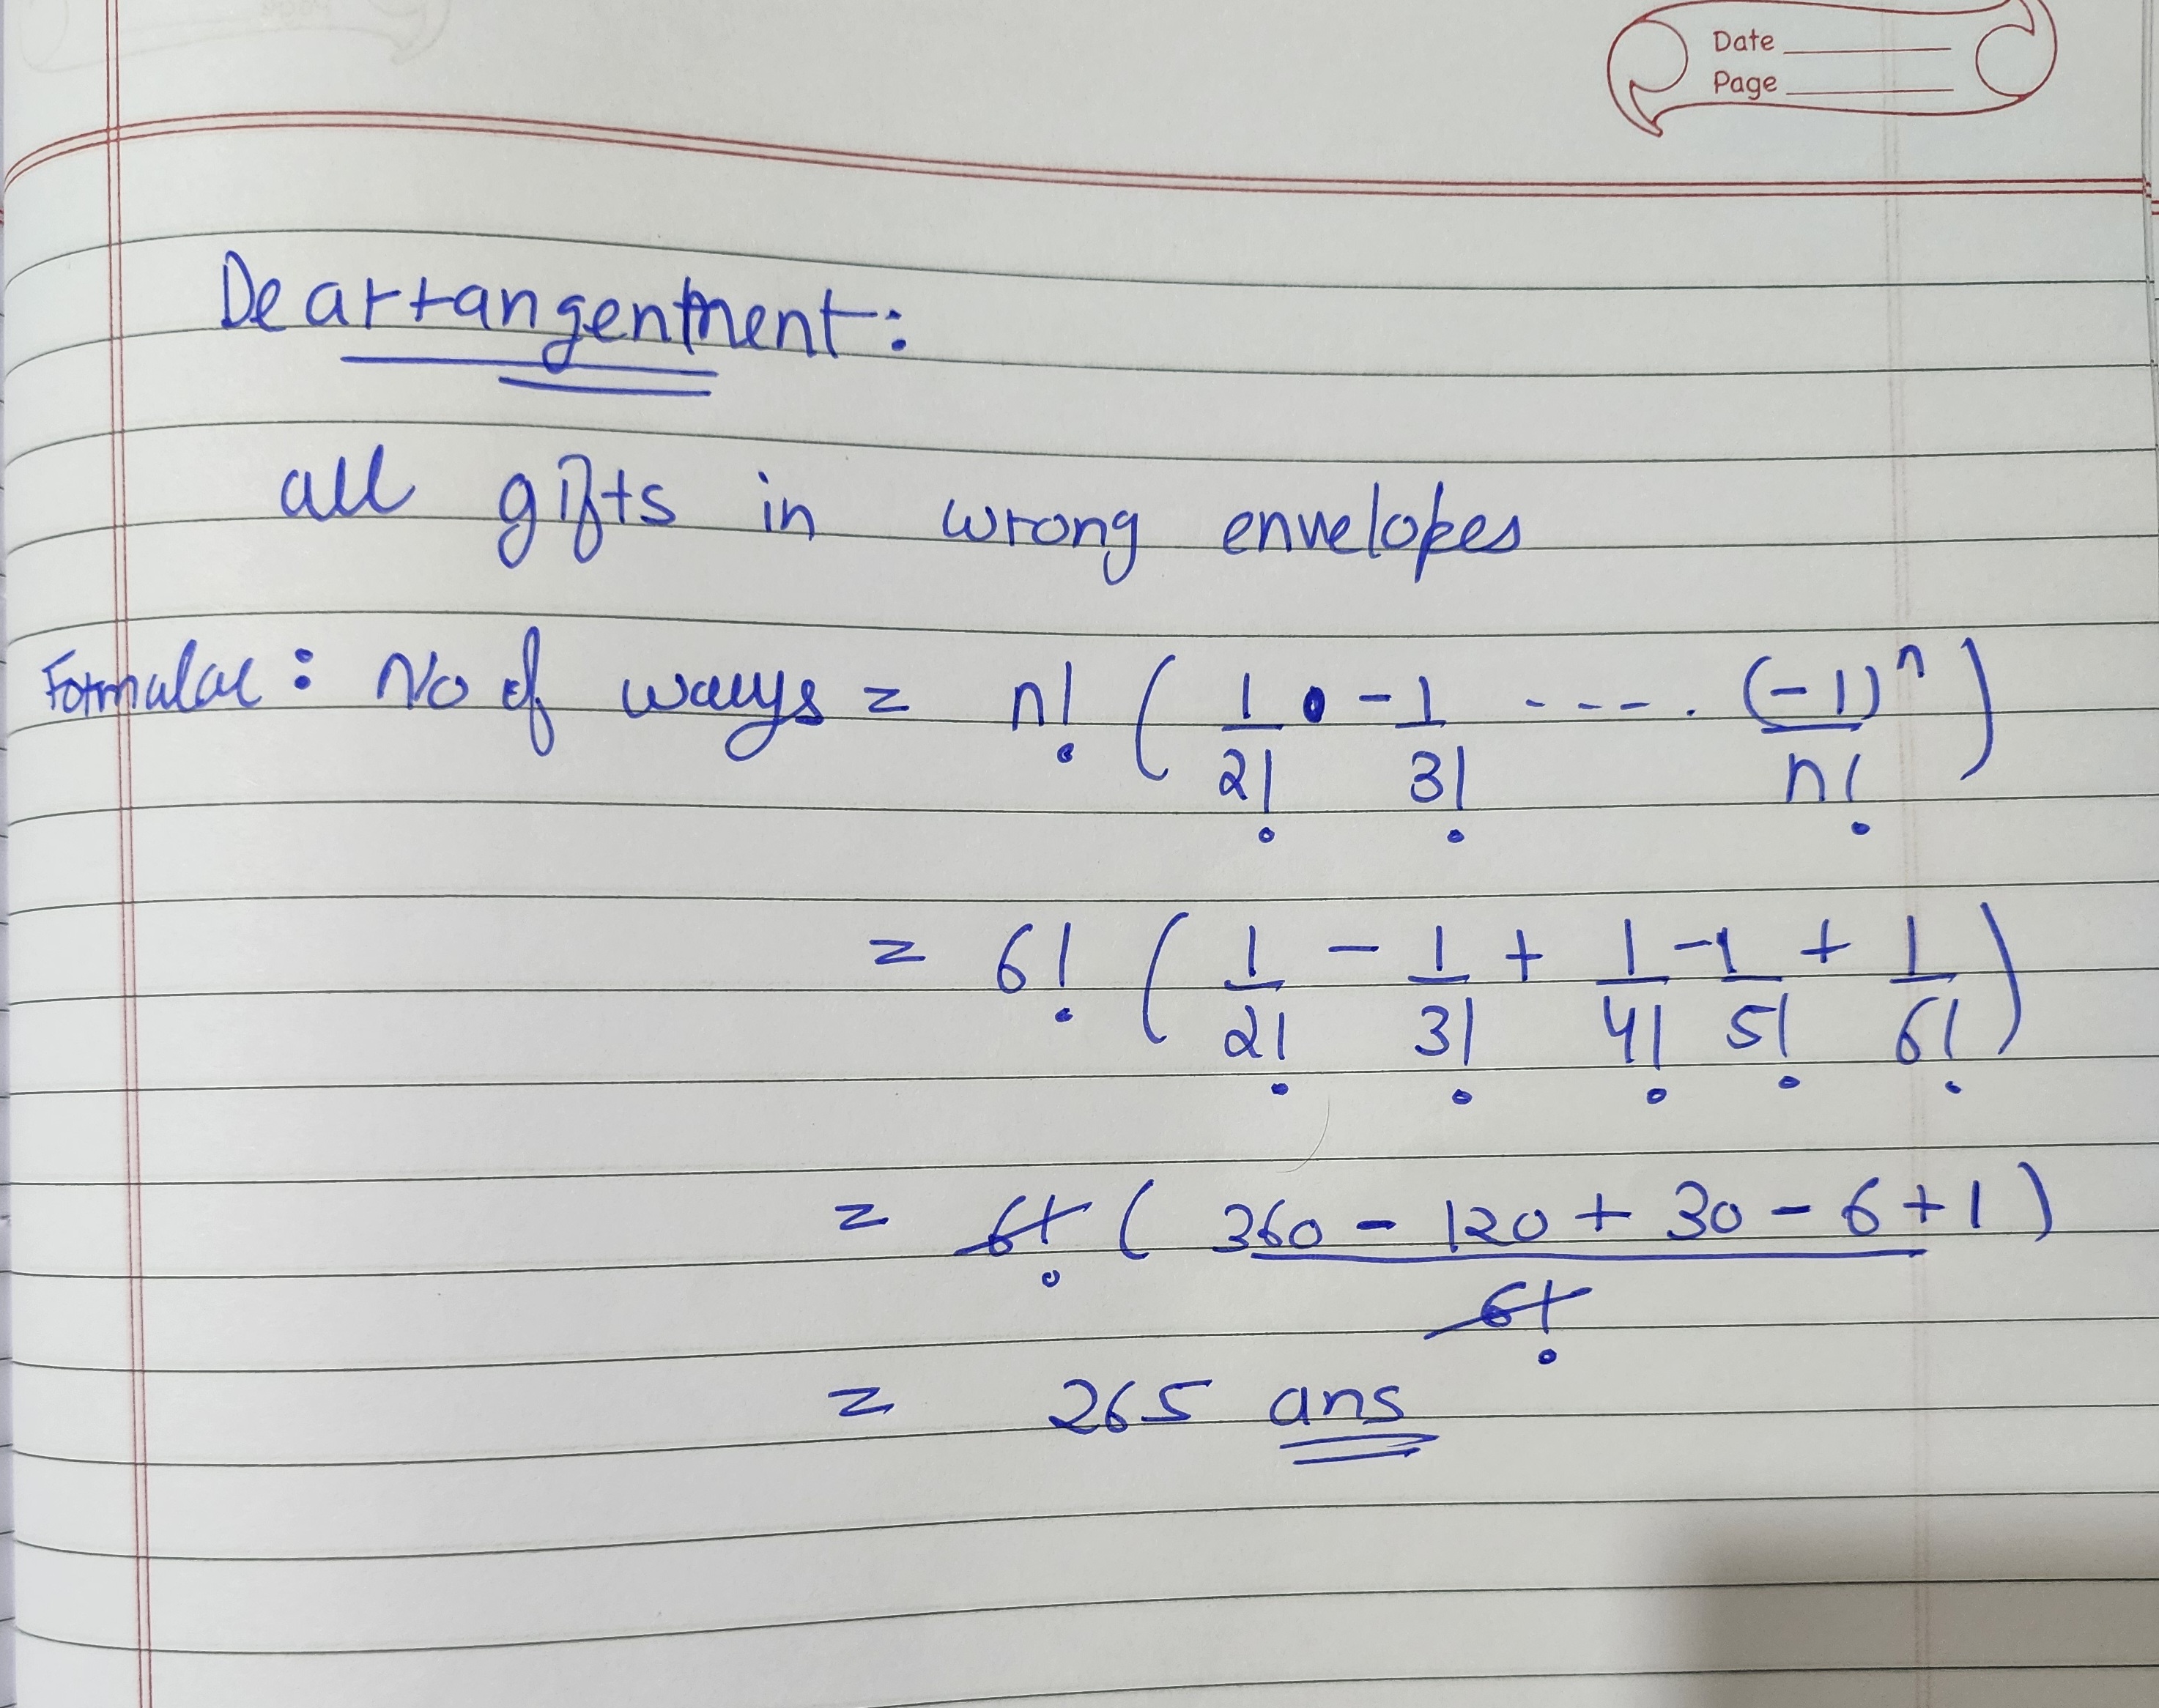 Date
Page
Dearrangentment:
all gifts in wrong envelopes
Formulae: No of ways = n! ( 1/2! - 1/3! ----. (-1)^n/n! )
= 6! ( 1/2! - 1/3! + 1/4! - 1/5! + 1/6! )
= 6! ( 360 - 120 + 30 - 6 + 1 ) / 6!
= 265 ans